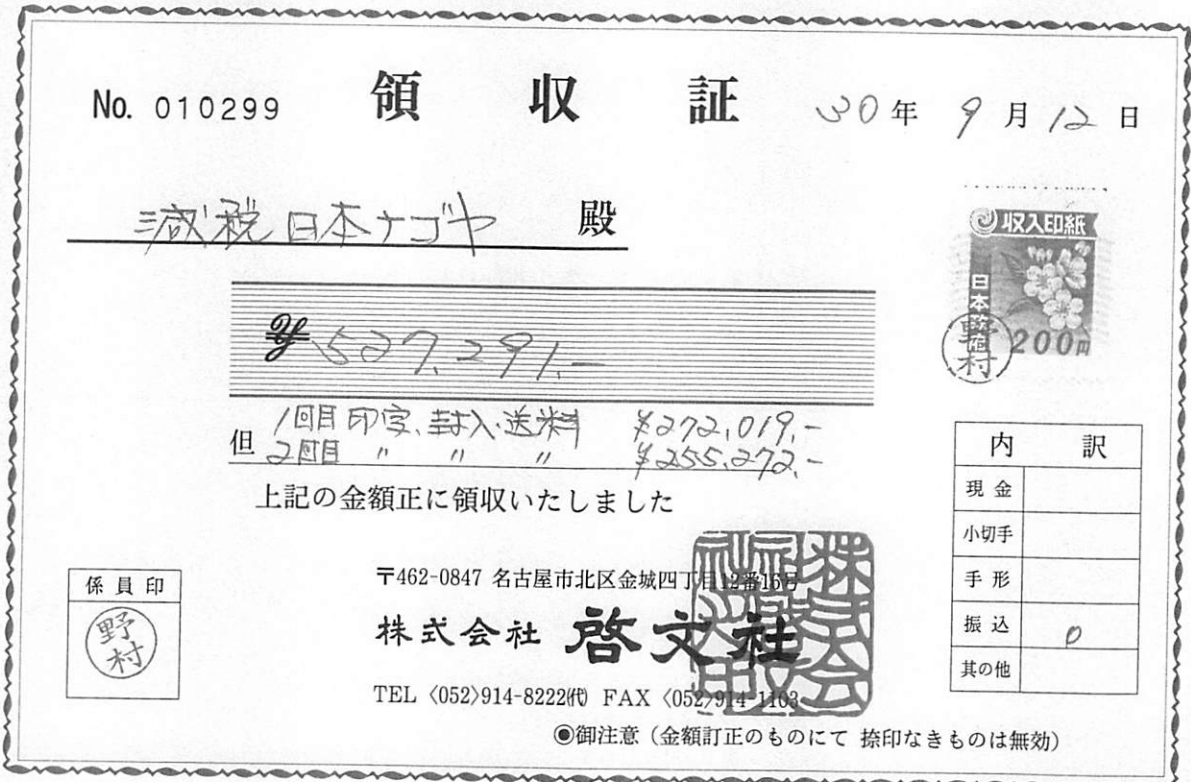 No. 010299 領収証 30年 9月12日
減税日本ナゴヤ 殿
収入印紙
日本政府
200円
野村
¥527,291.-
但 1回目 印字、封入、送料 ¥272,019.-
2回目 〃 〃 〃 ¥255,272.-
上記の金額正に領収いたしました
内訳
現金
小切手
手形
振込 o
其の他
係員印
野村
〒462-0847 名古屋市北区金城四丁目12番16号
株式会社 啓文社
TEL〈052〉914-8222㈹ FAX〈052〉914-1103
◉御注意(金額訂正のものにて 捺印なきものは無効)